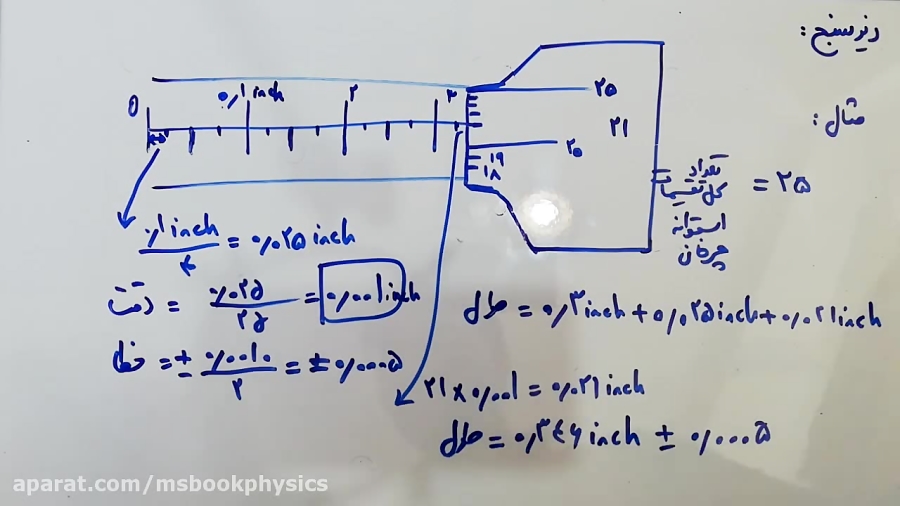 ریزسنج:
مثال:
0 ۰/۱ inch ۲ ۳
۲۵
۲۱
۲۰
۱۹
۱۸
تعداد کل تقسیمات استوانه چرخان = ۲۵
۰/۱ inch / ۴ = ۰/۰۲۵ inch
دقت = ۰/۰۲۵ / ۲۵ = ۰/۰۰۱ inch
خطا = ± ۰/۰۰۱۰ / ۲ = ± ۰/۰۰۰۵
طول = ۰/۳ inch + ۰/۰۲۵ inch + ۰/۰۲۱ inch
۲۱ × ۰/۰۰۱ = ۰/۰۲۱ inch
طول = ۰/۳۴۶ inch ± ۰/۰۰۰۵
aparat.com/msbookphysics